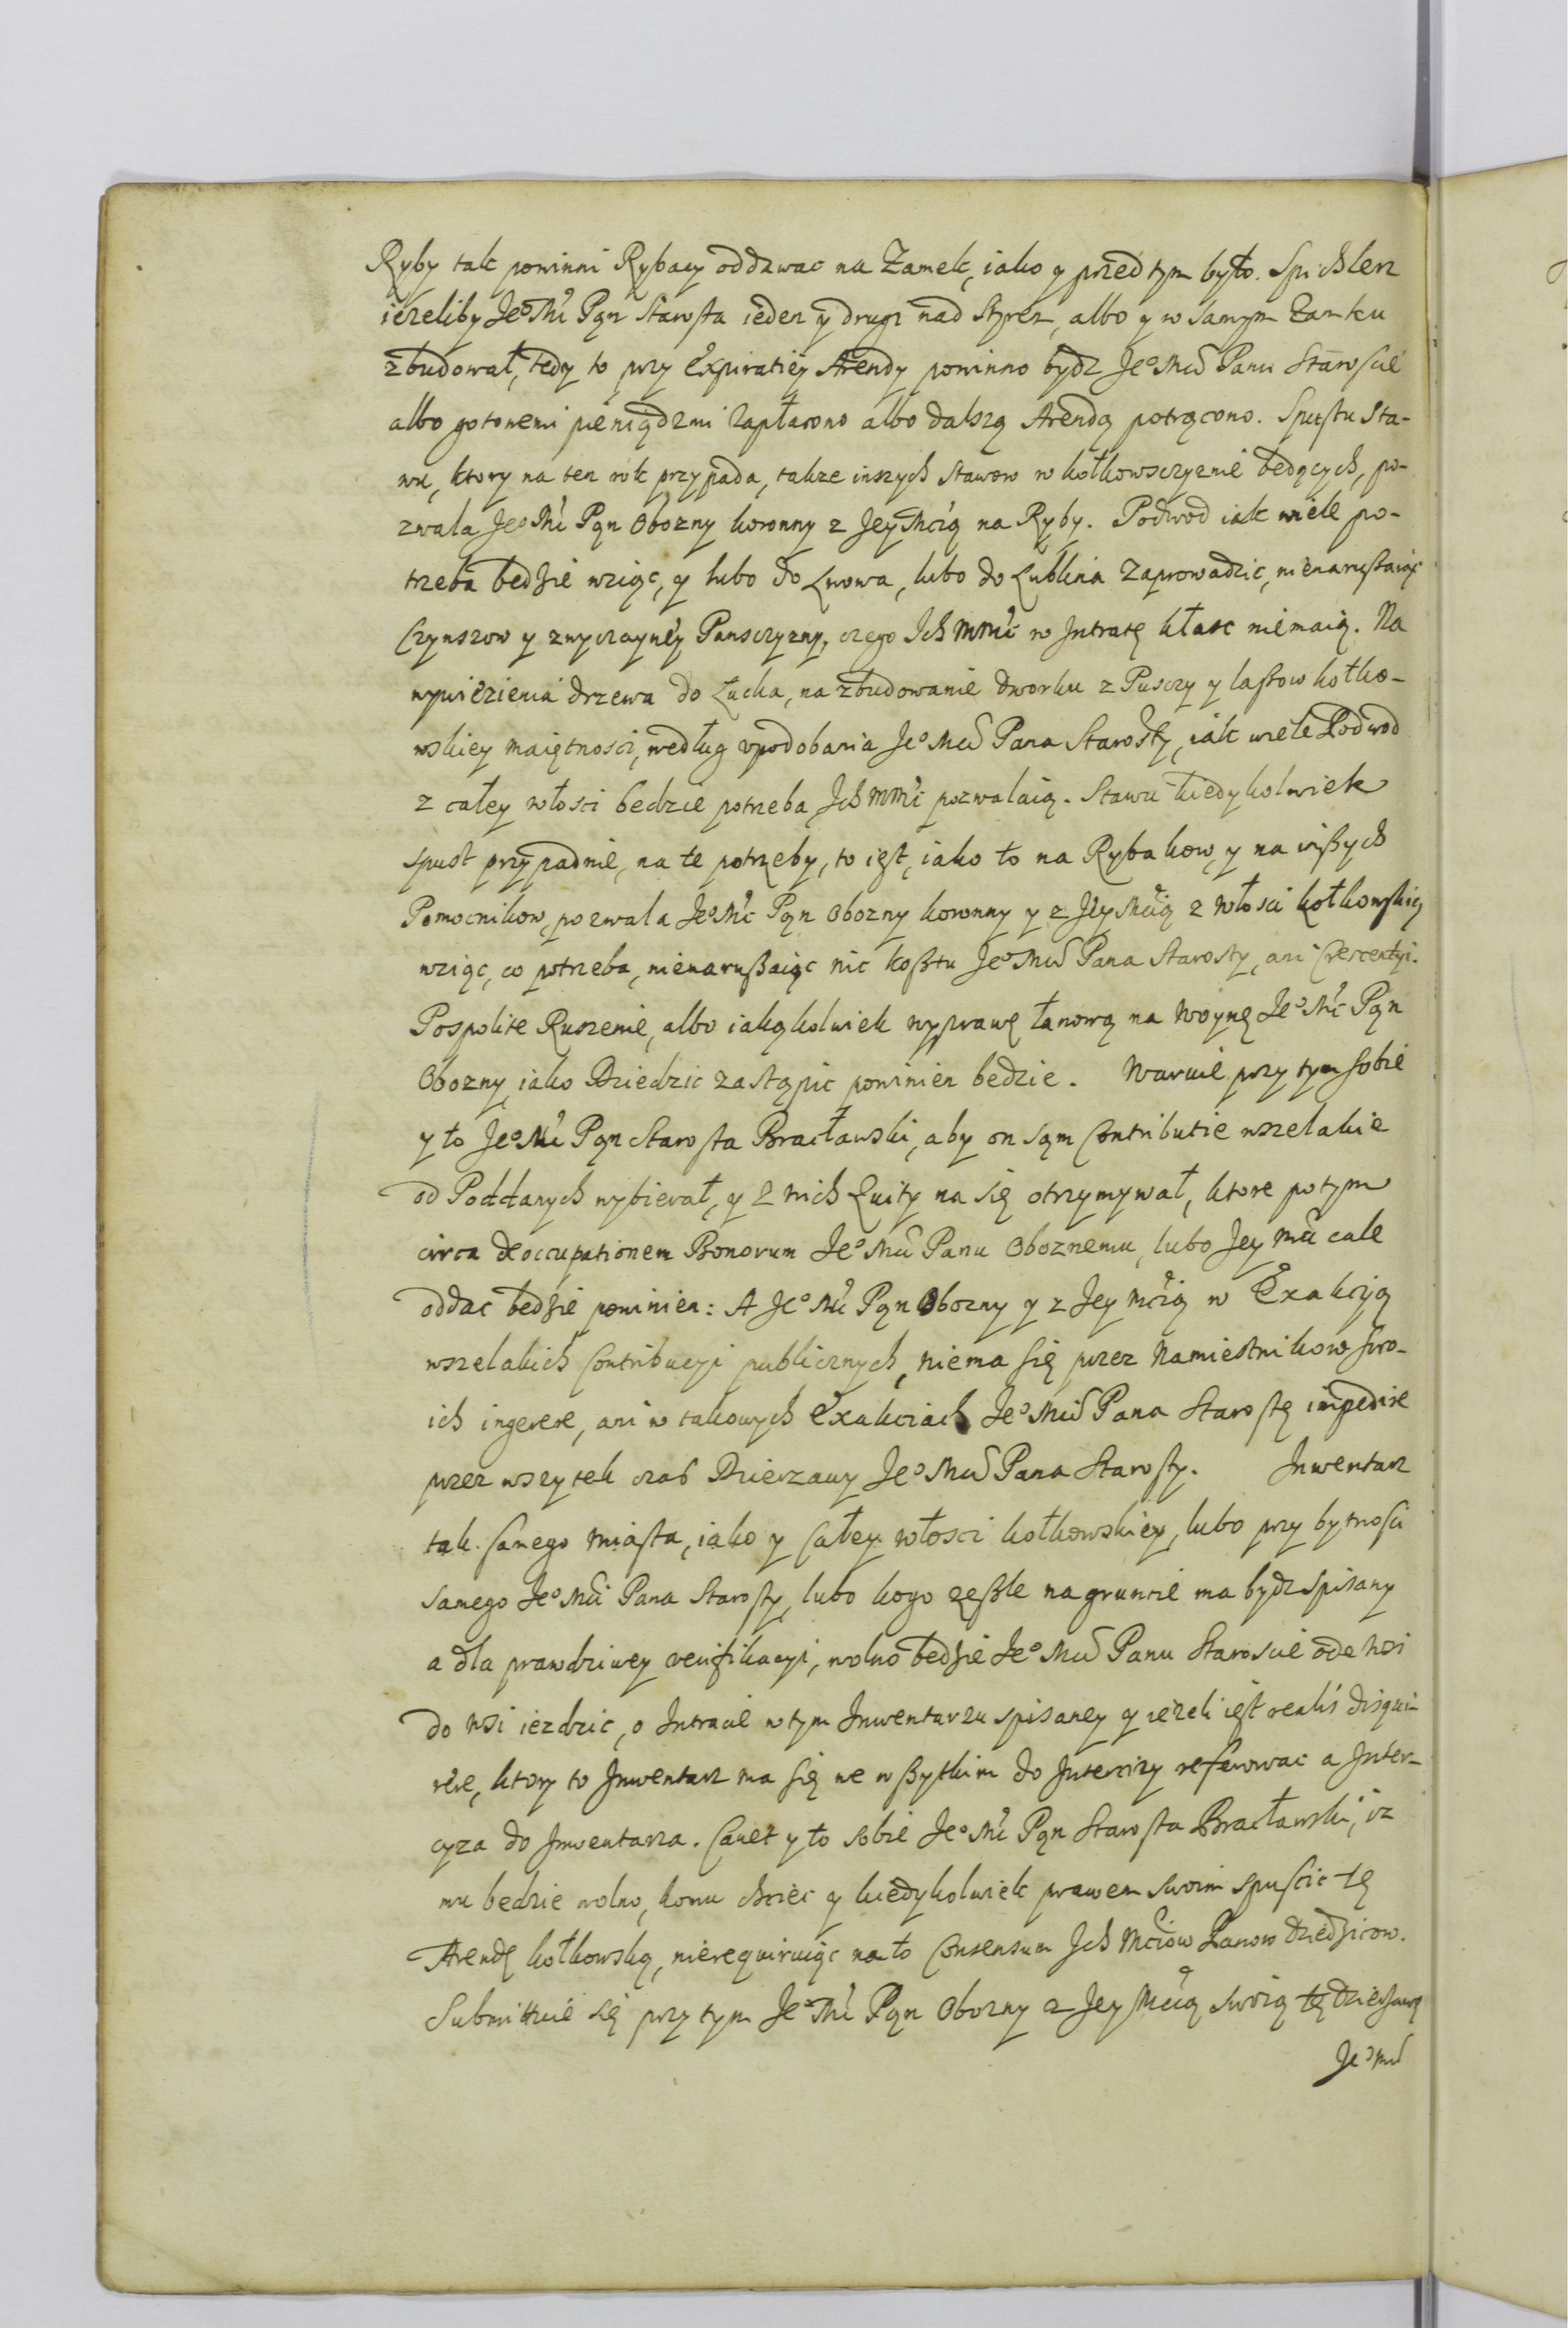 Ryby tak powinni Rybacy oddawac na Zamek, iako y przedtym było. Spichlerz
ieżeliby Jeo Mć Pąn Starosta ieden y drugi nad Styrem, albo y w samym Zamku
zbudował, tedy to przy Expiratiey Arendy powinno bydz Jeo Mći Panu Staroscie
albo gotowemi pieniądzmi zapłacono albo dalszą Arendą potrącono. Spustu Sta-
wu, ktory na ten rok przypada, także inszych Stawow w kołkowsczyznie będących, po-
zwala Jeo Mć Pąn Obozny koronny z JeyMcią na Ryby. Podwod iak wiele po-
trzeba bedzie wziąc, y lubo do Lwowa, lubo do Lublina zaprowadzic, nienarußaiąc
Czynszow y zwyczayney Pansczyzny, czego Ich MMć w Intratę kłasc niemaią. Na
wywiezienia drzewa do Łucka, na zbudowanie dworku z Pusczy y lassow kołko-
wskiey maiętnosci, według upodobania Jeo Mći Pana Starosty, iak wiele Podwod
z całey włosci bedzie potrzeba Ich MMć pozwalaią. Stawu kiedykolwiek
spust przypadnie, na te potrzeby, to iest, iako to na Rybakow, y na inßych
Pomocnikow, pozwala Jeo Mć Pąn Obozny koronny y z JeyMcią z włosci kołkowskiey
wziąc, co potrzeba, nienarußaiąc nic koßtu Jeo Mći Pana Starosty, ani Crescentyi.
Pospolite Ruszenie, albo iakąkolwiek wyprawę łanową na Woynę Jeo Mć Pąn
Obozny, iako Dziedzic zastąpic powinien bedzie. Waruie przy tym sobie
y to Jeo Mć Pąn Starosta Bracławski, aby on sąm Contributie wszelakie
od Poddanych wybierał, y z nich Quity na się otrzymywał, ktore potym
circa deoccupationem Bonorum Jeo Mći Panu Oboznemu, lubo Jey Mći cale
oddac bedzie powinien: A Jeo Mć Pąn Obozny y z Jey Mcią w Exakcyą
wszelakich Contribucyi publicznych, niema się przez Namiestnikow swo-
ich ingerere, ani w takowych Exakciach Jeo Mći Pana Starostę impedire
przez wszytek czas Dzierzawy Jeo Mći Pana Starosty. Inwentarz
tak samego Miasta, iako y Całey włosci kołkowskiey, lubo przy bytnosci
samego Jeo Mći Pana Starosty, lubo kogo zeßle na gruncie ma bydz spisany
a dla prawdziwey verifikacyi, wolno bedzie Jeo Mći Panu Staroscie ode wsi
do wsi iezdzic, o Intracie w tym Inwentarzu spisaney y iezeli iest realis disqui-
rere, ktory to Inwentarz ma się we wßytkim do Intercizy referowac a Inter-
cyza do Inwentarza. Cavet y to sobie Jeo Mć Pąn Starosta Bracławski, iz
mu bedzie wolno, komu chciec y kiedykolwiek prawem swoim spuscic tę
Arendę kołkowską, nierequiruiąc na to Consensum Ich Mćiow Panow dziedzicow.
Submittuie się przy tym Jeo Mć Pąn Obozny z Jey Mcią swoią tę dzierzawę
Jeo Mći